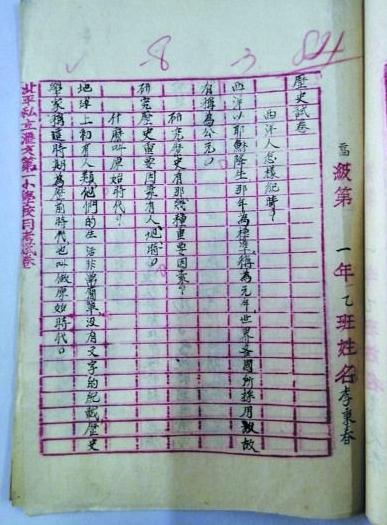 84
8
高級第一年乙班姓名李東春
歷史試卷
西洋人怎樣紀時？
西洋以耶穌降生那年為標準，稱為元年，世界各國所採用，故
有稱為公元。
研究歷史有那幾種重要因素？
研究歷史重要因素有人、地、時。
什麼叫原始時代？
地球上初有人類他們的生活非常簡單，沒有文字的紀載，歷史
學家稱這時期為歷前時代也叫做原始時代。
北平私立滙文第一小學校月考試卷